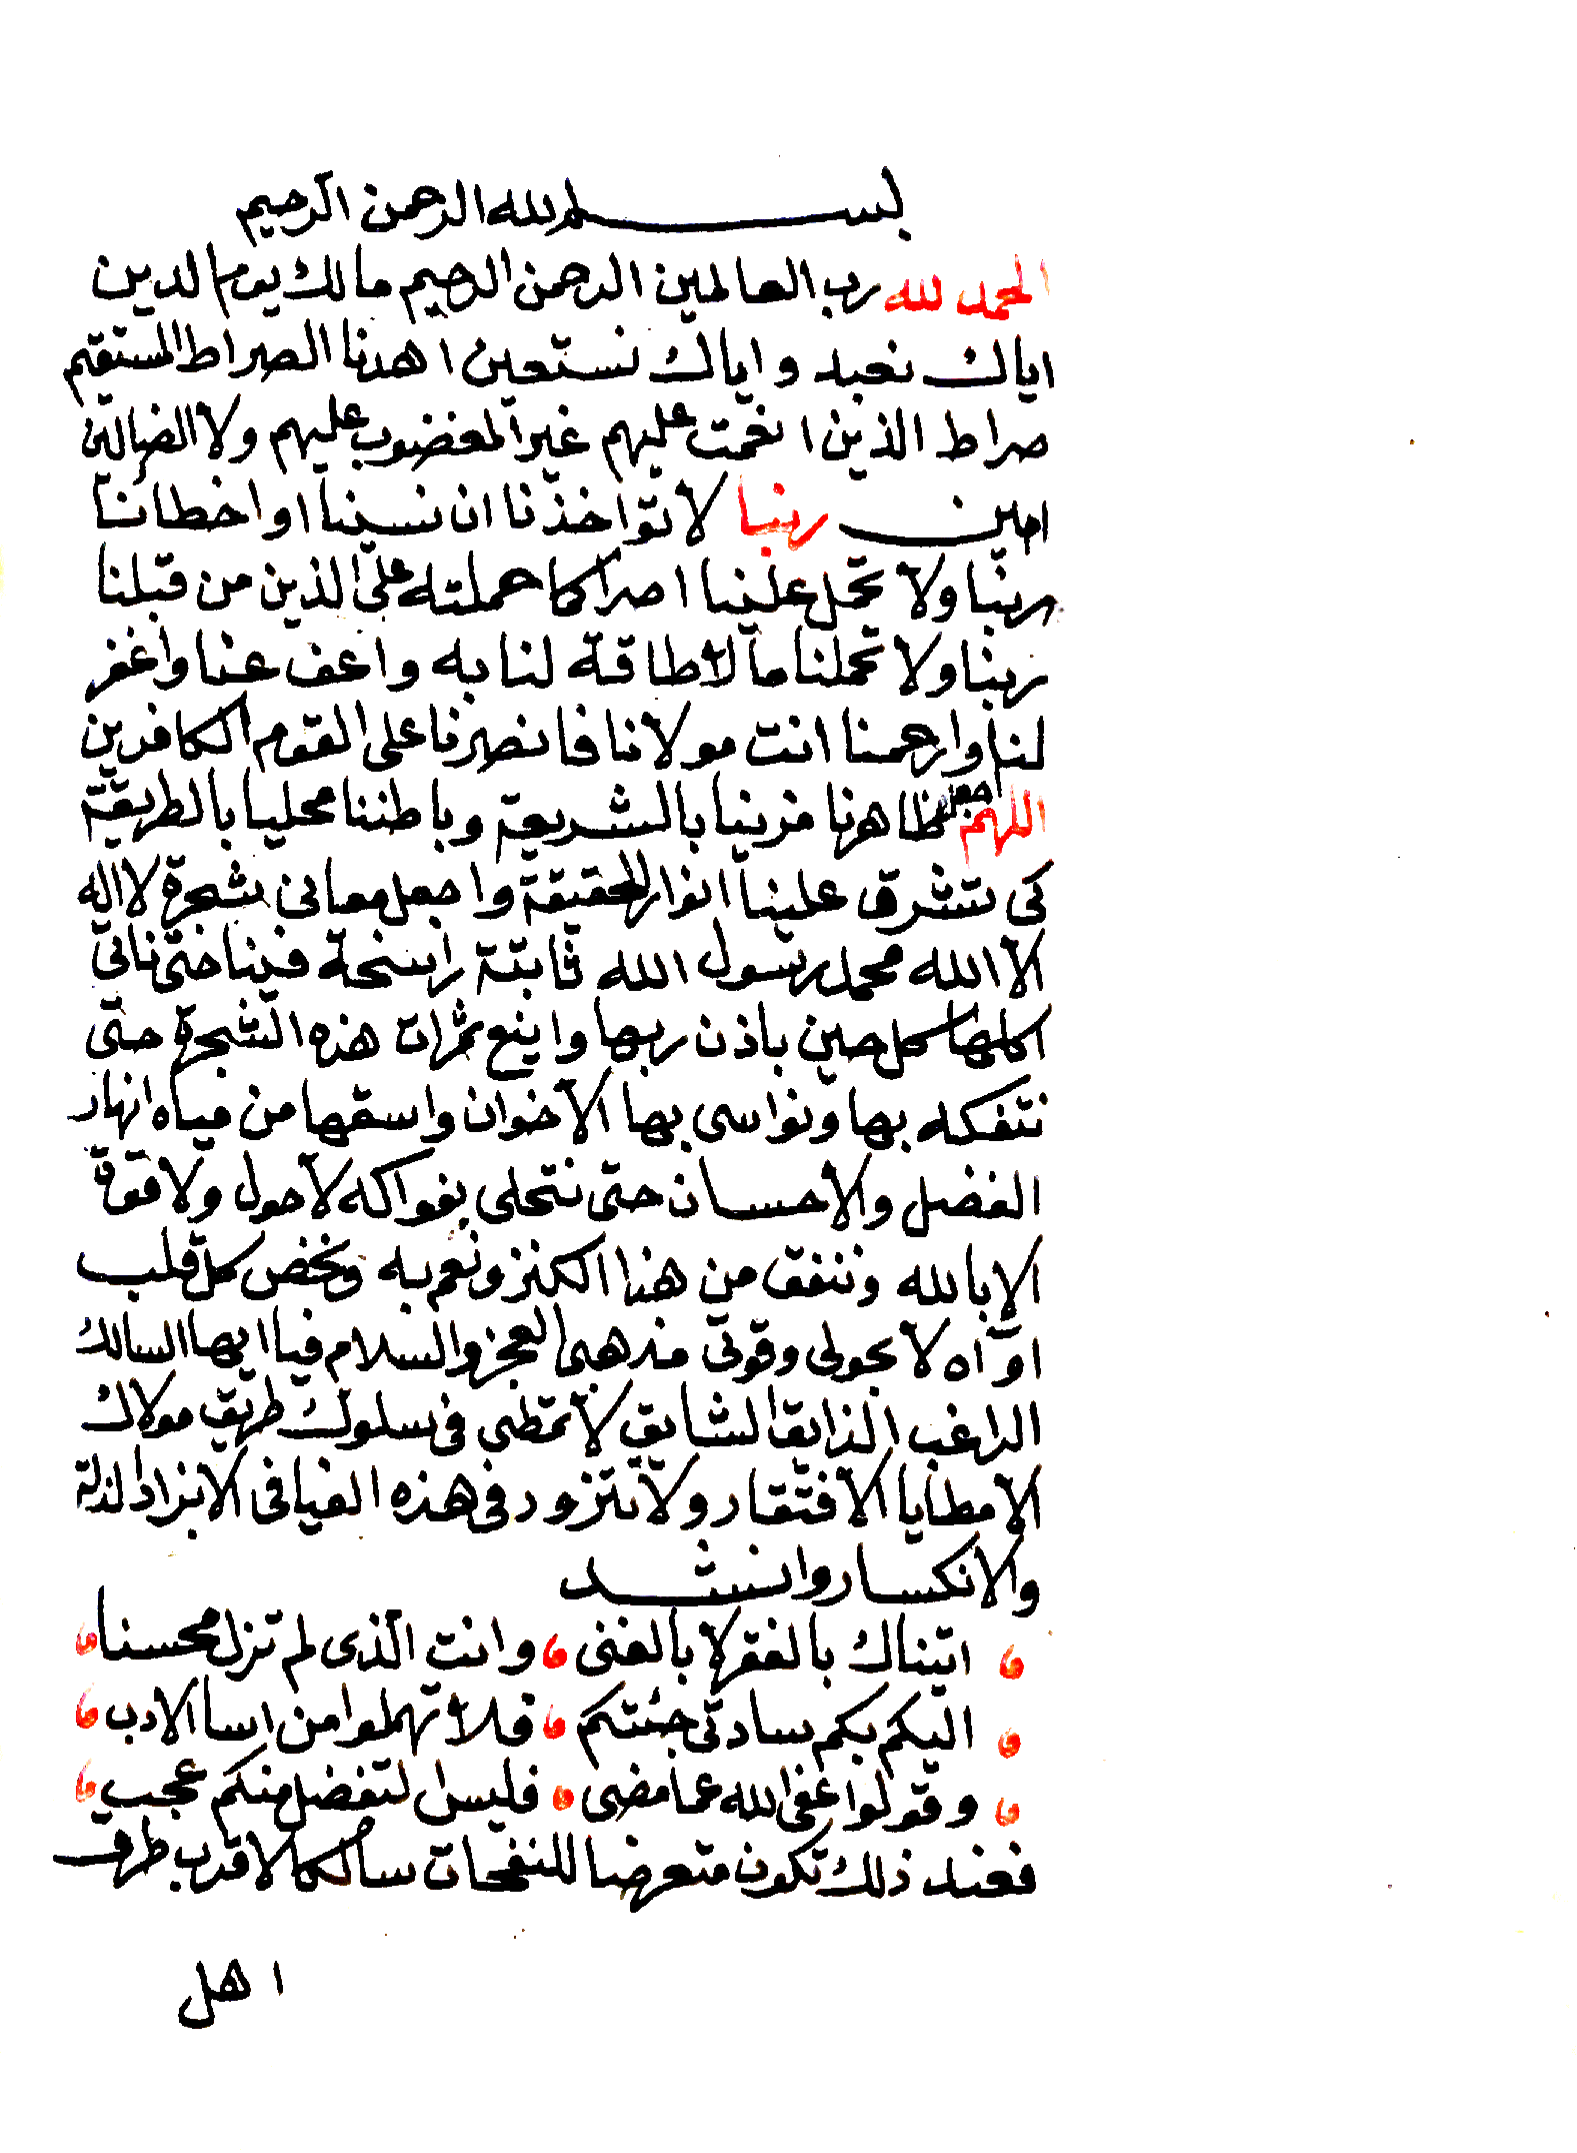 بسم الله الرحمن الرحيم
الحمد لله رب العالمين الرحمن الرحيم مالك يوم الدين
اياك نعبد واياك نستعين اهدنا الصراط المستقيم
صراط الذين انعمت عليهم غير المغضوب عليهم ولا الضالين
امين ربنا لا تواخذنا ان نسينا او اخطانا
ربنا ولا تحمل علينا اصرا كما حملته على الذين من قبلنا
ربنا ولا تحملنا ما لا طاقة لنا به واعف عنا واغفر
لنا وارحمنا انت مولانا فانصرنا على القوم الكافرين
اللهم اجعل ظاهرنا مزينا بالشريعة وباطننا محليا بالطريقة
كى تشرق علينا انوار الحقيقة واجعل معانى شجرة لا اله
الا الله محمد رسول الله ثابتة راسخة فينا حتى تاتى
اكلها كل حين باذن ربها واينع ثمرات هذه الشجرة حتى
نتفكه بها ونواسى بها الاخوان واسقها من مياه انهار
الفضل والاحسان حتى نتحلى بفواكه لا حول ولا قوة
الا بالله وننفق من هذا الكنز ونعم به ونخص كل قلب
اواه لا بحولى وقوتى مذهبى العجز والسلام فيا ايها السالك
الراغب الذايق الشايق لا تمتطى فى سلوك طريق مولاك
الا مطايا الافتقار ولا تتزود فى هذه الفيافى الا بزاد الذلة
والانكسار وانشد
اتيناك بالفقر لا بالغنى وانت الذى لم تزل محسنا
اليكم بكم سادتى جئتكم فلا تهملوا من اسا الادب
وقولوا عفى الله عما مضى فليس التفضل منكم عجب
فعند ذلك تكون متعرضا للنفحات سالكا لاقرب طرف
اهل